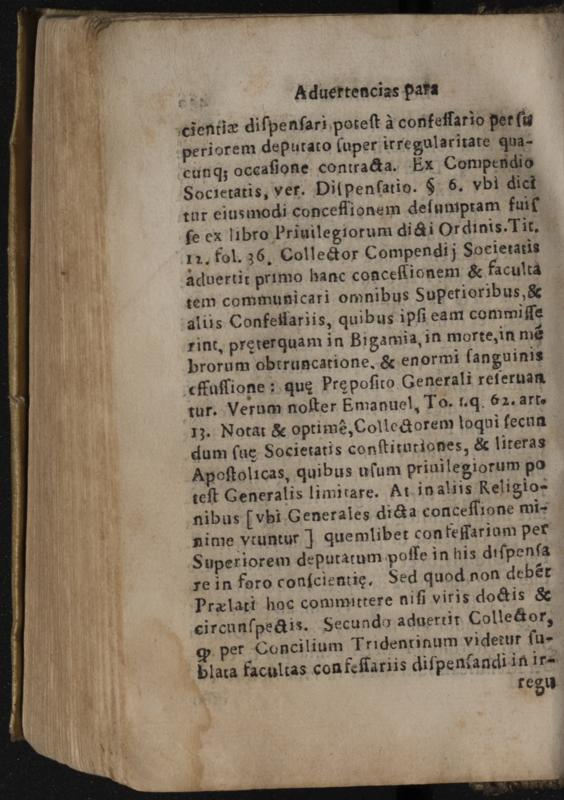 Aduertencias para
cientiæ diſpenſari poteſt à confeſſario per ſu
periorem deputato ſuper irregularitate qua-
cunq; occaſione contracta. Ex Compendio
Societatis, ver. Diſpenſatio. § 6. vbi dici
tur eiusmodi conceſſionem deſumptam fuiſ
ſe ex libro Priuilegiorum dicti Ordinis. Tit.
12. fol. 36. Collector Compendij Societatis
aduertit primo hanc conceſſionem & faculta
tem communicari omnibus Superioribus, &
aliis Confeſſariis, quibus ipſi eam commiſſe
rint, pręterquam in Bigamia, in morte, in mẽ
brorum obtruncatione, & enormi ſanguinis
effuſſione: quę Prępoſito Generali reſeruan
tur. Verum noſter Emanuel, To. 1. q. 62. art.
13. Notat & optimê, Collectorem loqui ſecun
dum ſuę Societatis conſtitutiones, & literas
Apoſtolicas, quibus uſum priuilegiorum po
teſt Generalis limitare. At in aliis Religio-
nibus [vbi Generales dicta conceſſione mi-
nime vtuntur] quemlibet confeſſarium per
Superiorem deputatum poſſe in his diſpenſa
re in foro conſcientię. Sed quod non debẽt
Prælati hoc committere niſi viris doctis &
circunſpectis. Secundo aduertit Collector,
ꝙ per Concilium Tridentinum videtur ſu-
blata facultas confeſſariis diſpenſandi in ir-
regu